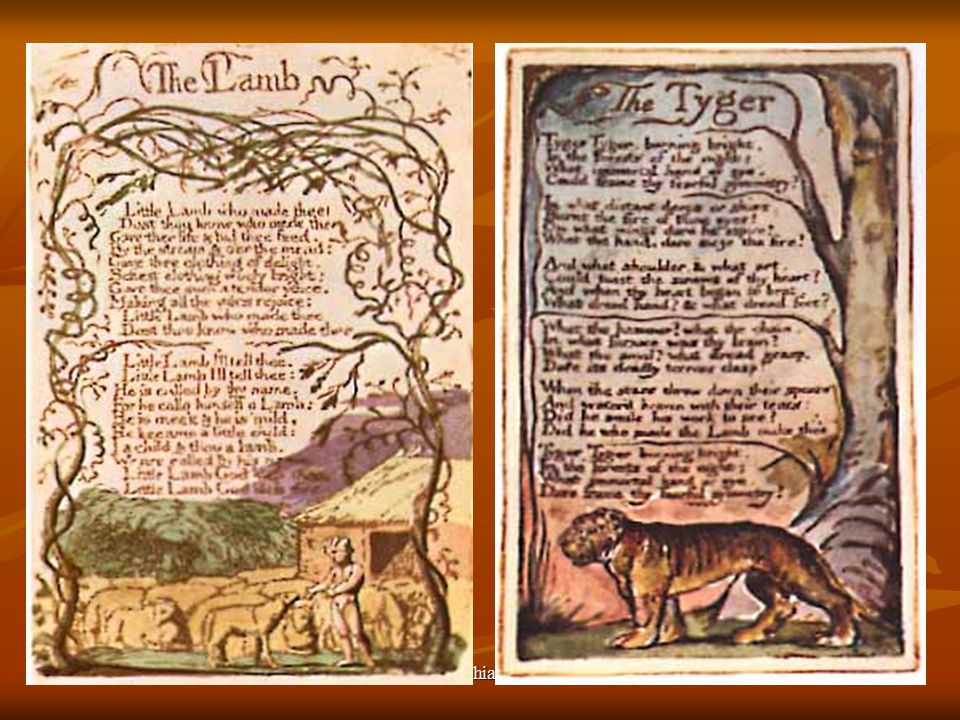 The Lamb
Little Lamb who made thee
Dost thou know who made thee
Gave thee life & bid thee feed.
By the stream & o'er the mead;
Gave thee clothing of delight,
Softest clothing wooly bright;
Gave thee such a tender voice,
Making all the vales rejoice:
Little Lamb who made thee
Dost thou know who made thee
Little Lamb I'll tell thee,
Little Lamb I'll tell thee:
He is called by thy name,
For he calls himself a Lamb:
He is meek & he is mild,
He became a little child:
I a child & thou a lamb,
We are called by his
Little Lamb God bless thee,
Little Lamb God bless
The Tyger
Tyger Tyger, burning bright,
In the forests of the night;
What immortal hand or eye,
Could frame thy fearful symmetry?
In what distant deeps or skies
Burnt the fire of thine eyes?
On what wings dare he aspire?
What the hand, dare seize the fire?
And what shoulder, & what art,
Could twist the sinews of thy heart?
And when thy heart began to beat,
What dread hand? & what dread feet?
What the hammer? what the chain,
In what furnace was thy brain?
What the anvil? what dread grasp,
Dare its deadly terrors clasp
When the stars threw down their spears
And water'd heaven with their tears:
Did he smile his work to see?
Did he who made the Lamb make thee
Tyger Tyger burning bright,
In the forests of the night:
What immortal hand or eye,
Dare frame thy fearful symmetry?
hia